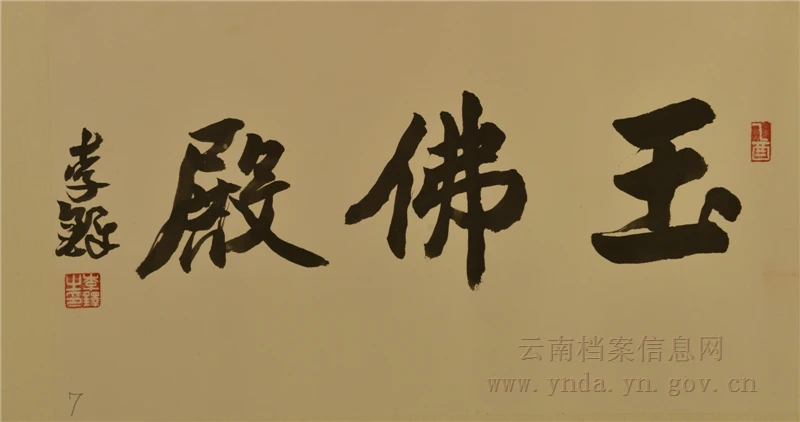 玉佛殿
李鐸
乙酉
李鐸之印
云南档案信息网
www.ynda.yn.gov.cn
7